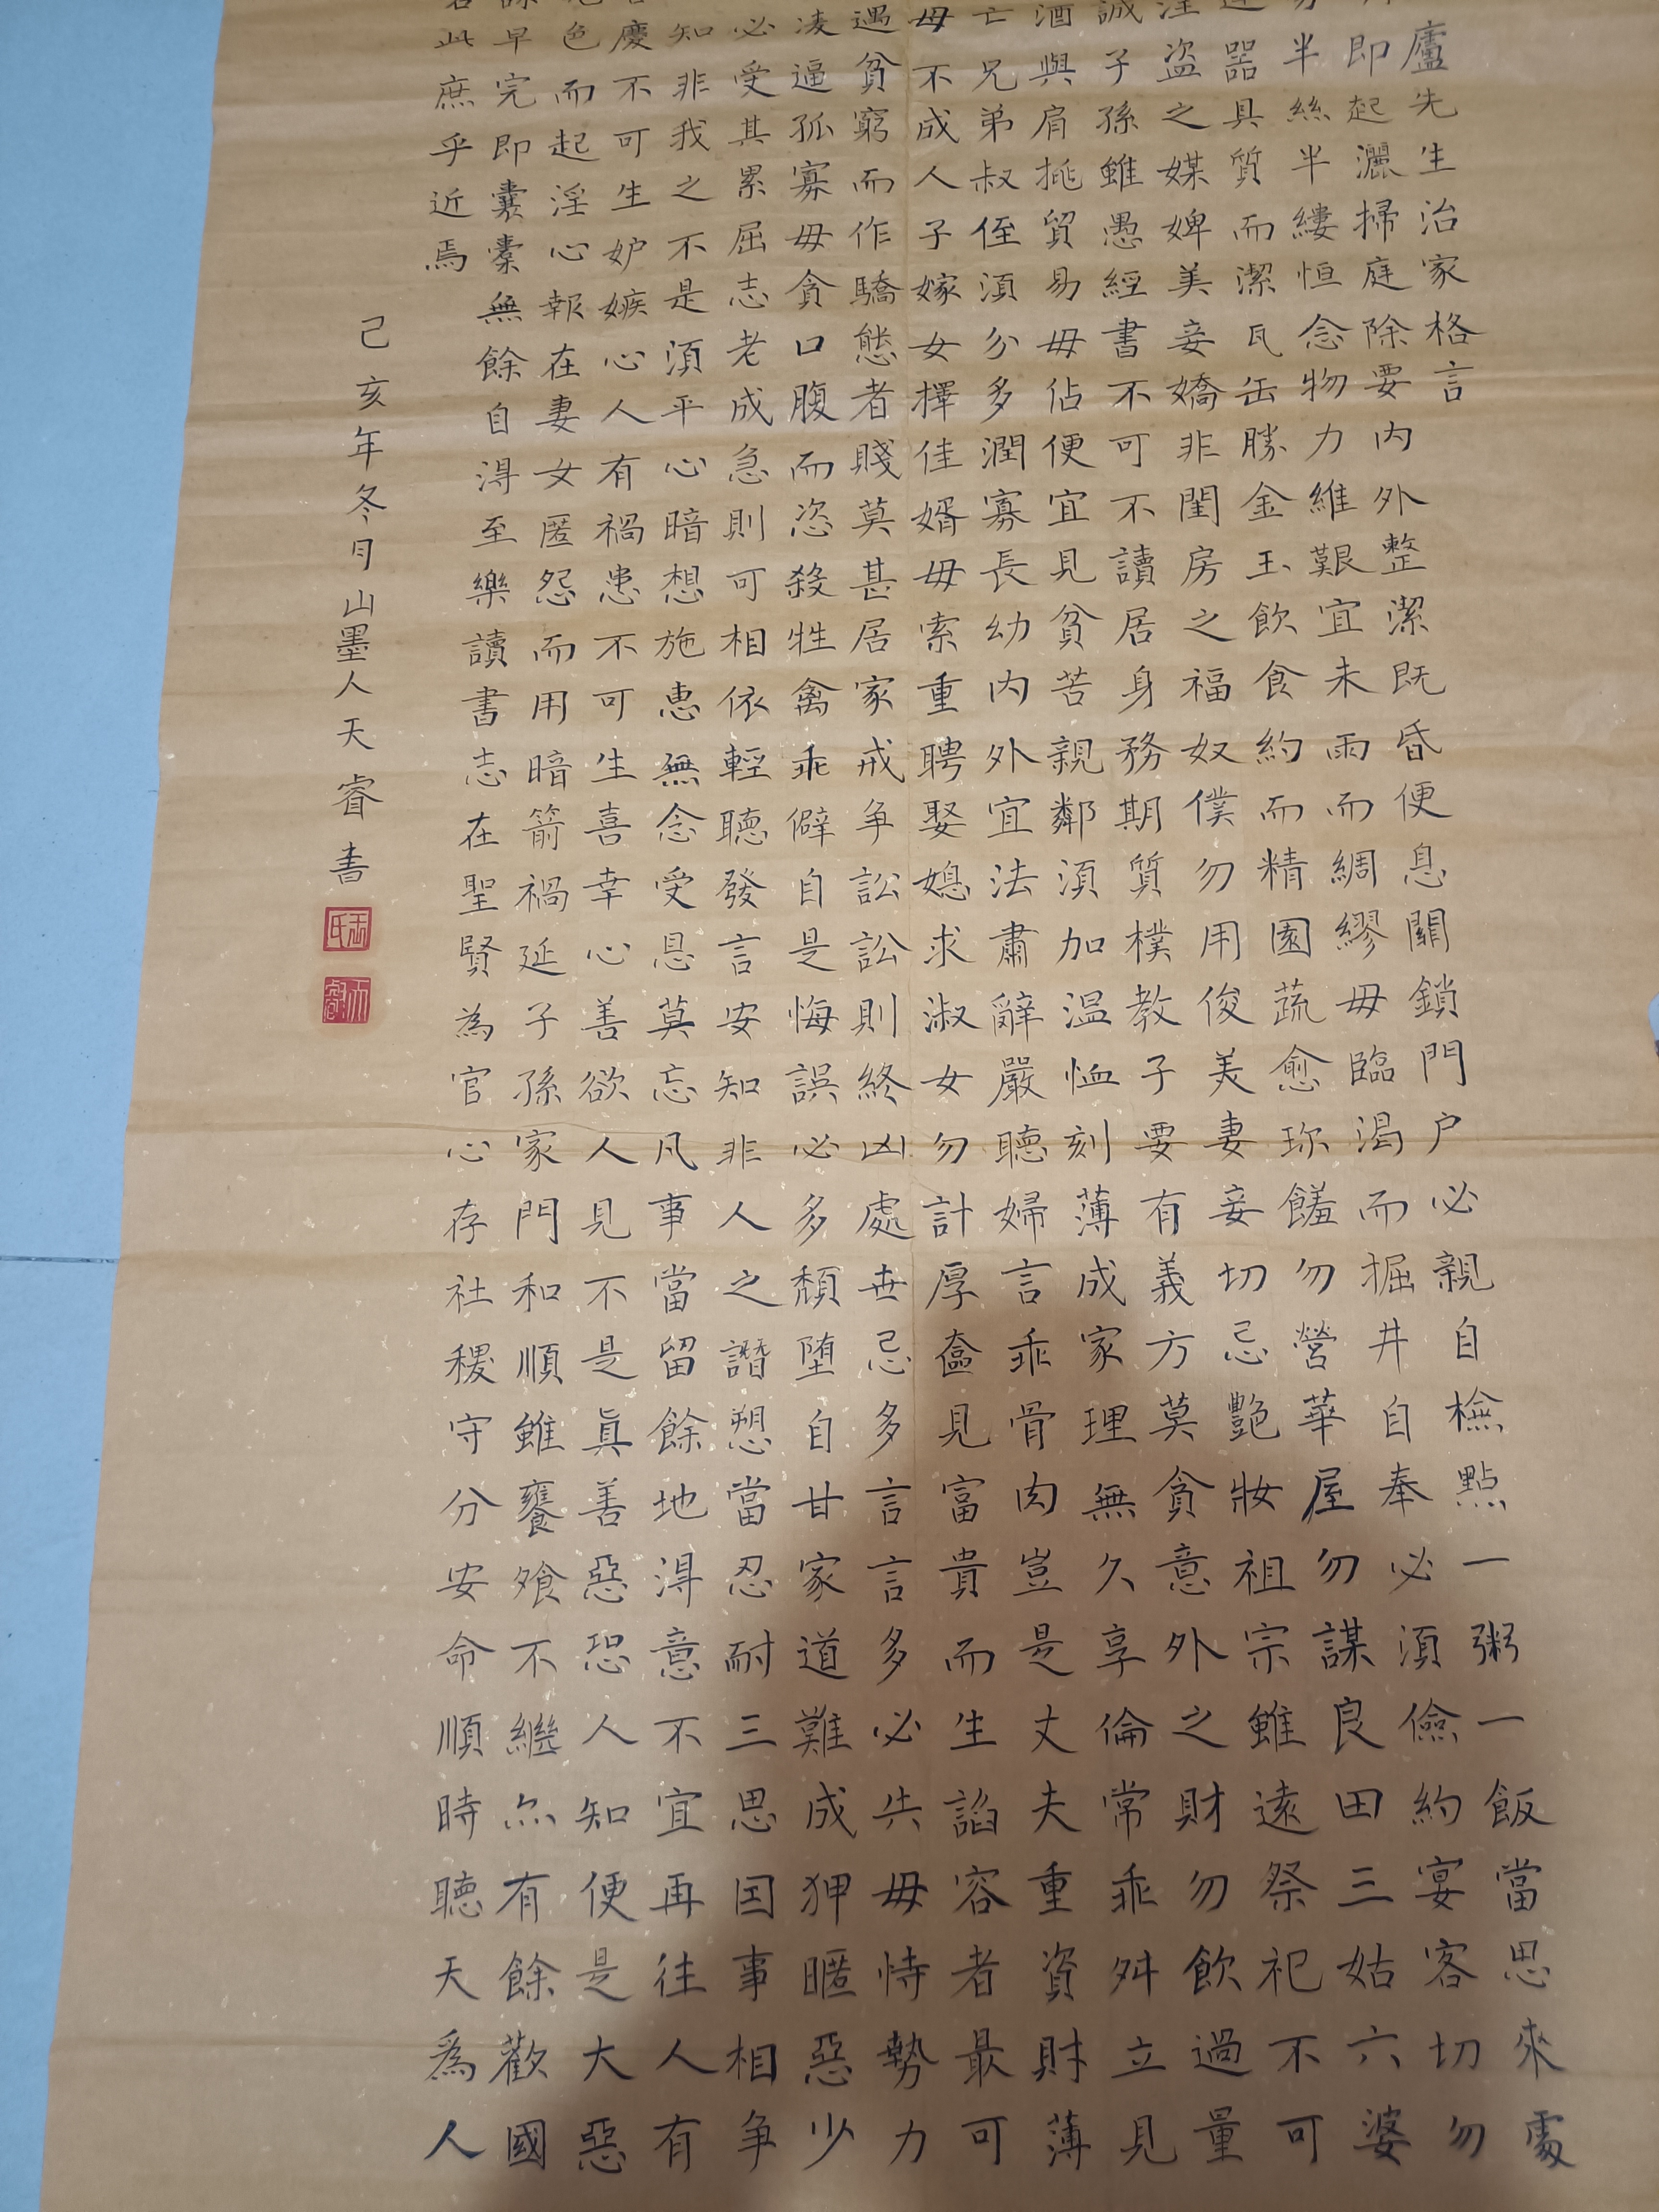 廬先生治家格言
即起灑掃庭除要內外整潔既昏便息關鎖門户必親自檢點一粥一飯當思來處
半絲半縷恒念物力維艱宜未雨而綢繆毋臨渴而掘井自奉必須儉約宴客切勿
器具質而潔瓦缶勝金玉飲食約而精園蔬愈珍饈勿營華屋勿謀良田三姑六婆
淫盜之媒婢美妾嬌非閨房之福奴僕勿用俊美妻妾切忌艷妝祖宗雖遠祭祀不可
誠子孫雖愚經書不可不讀居身務期質樸教子要有義方莫貪意外之財勿飲過量
酒與肩挑貿易毋佔便宜見貧苦親鄰須加温恤刻薄成家理無久享倫常乖舛立見
亡兄弟叔侄須分多潤寡長幼內外宜法肅辭嚴聽婦言乖骨肉豈是丈夫重資財薄
毋不成人子嫁女擇佳婿毋索重聘娶媳求淑女勿計厚奩見富貴而生諂容者最可
遇貧窮而作驕態者賤莫甚居家戒争訟訟則終凶處世忌多言言多必失毋恃勢力
凌逼孤寡毋貪口腹而恣殺牲禽乖僻自是悔誤必多頹墮自甘家道難成狎暱惡少
必受其累屈志老成急則可相依輕聽發言安知非人之譖愬當忍耐三思因事相争
知非我之不是須平心暗想施惠無念受恩莫忘凡事當留餘地得意不宜再往人有
慶不可生妒嫉心人有禍患不可生喜幸心善欲人見不是眞善惡恐人知便是大惡
色而起淫心報在妻女匿怨而用暗箭禍延子孫家門和順雖饔飧不繼亦有餘歡國
早完即囊橐無餘自得至樂讀書志在聖賢為官心存社稷守分安命順時聽天為人
此庶乎近焉
己亥年冬月山墨人天睿書
王氏
天睿